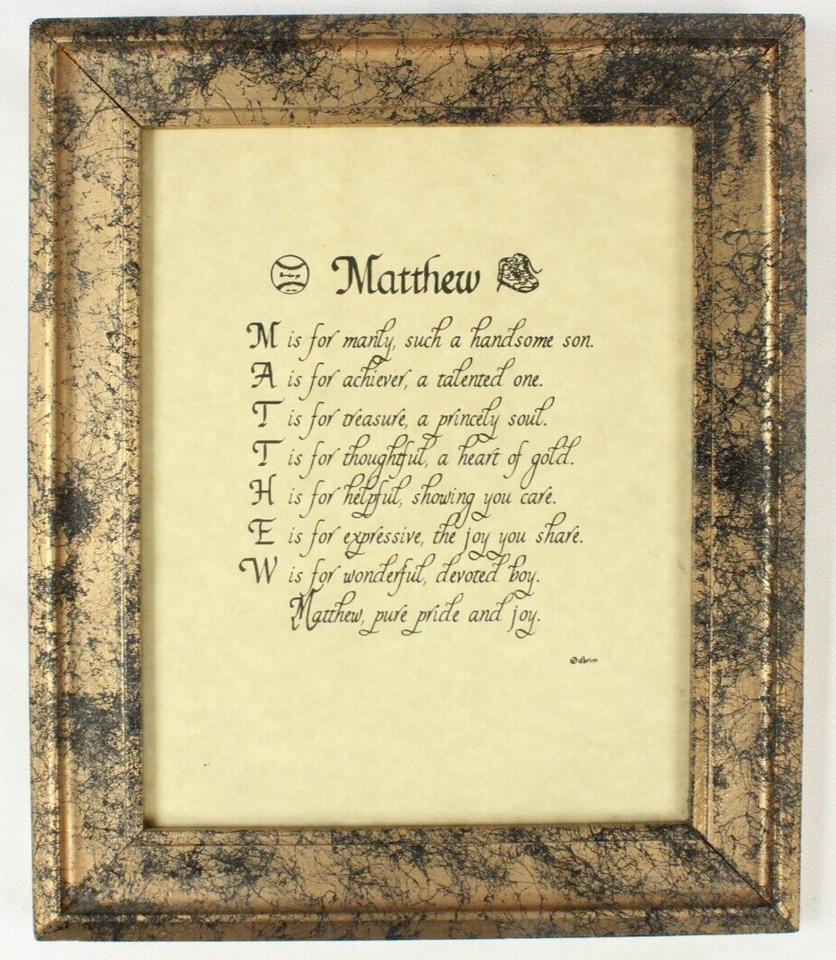 Matthew
M is for manly, such a handsome son.
A is for achiever, a talented one.
T is for treasure, a princely soul.
T is for thoughtful, a heart of gold.
H is for helpful, showing you care.
E is for expressive, the joy you share.
W is for wonderful, devoted boy.
Matthew, pure pride and joy.